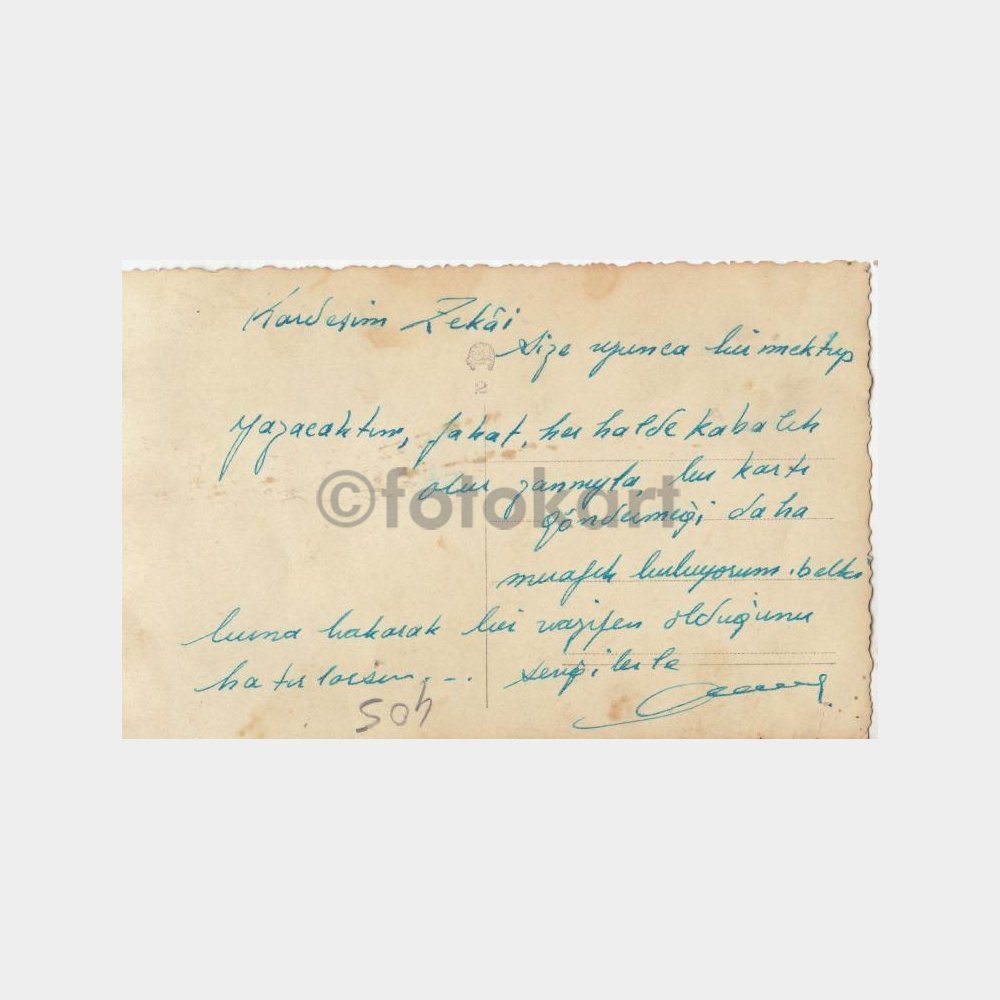 Kardeşim Zekâi
Size uzunca bir mektup
2
yazacaktım, fakat, her halde kabalık
olur zannıyla bu kartı
©fotokart
göndermeği daha
muafık buluyorum. belki
buna bakarak bir vazifen olduğunu
hatırlarsın...
sevgilerle
405